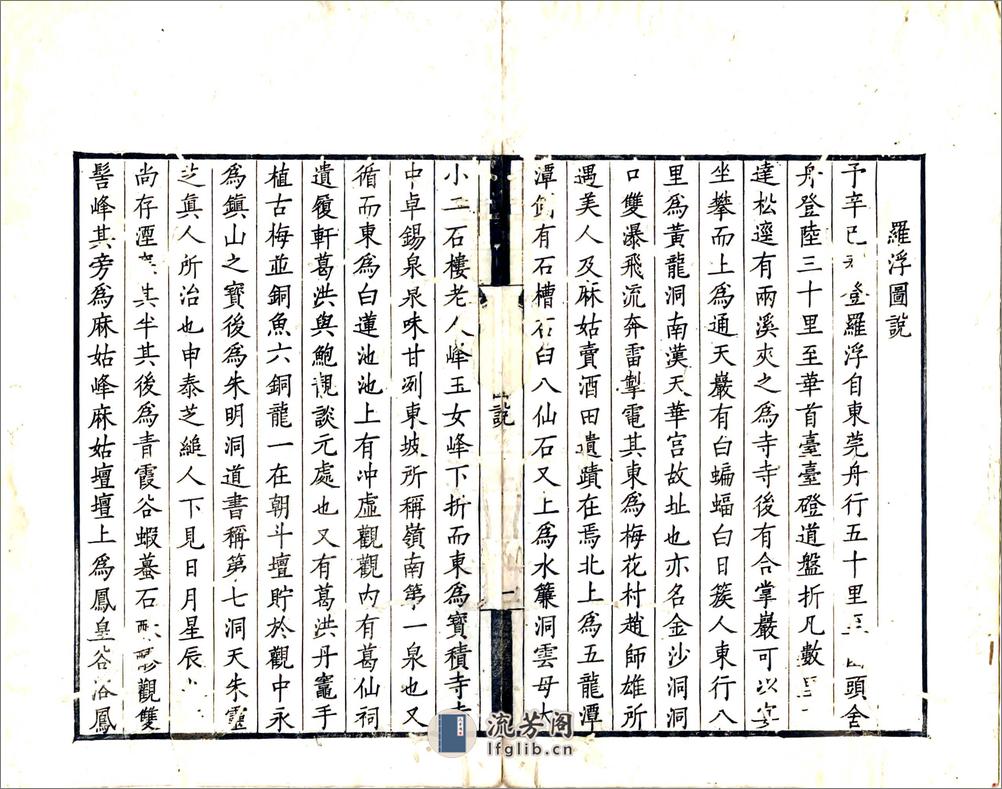 羅浮圖說
予辛巳登羅浮自東莞舟行五十里頭舍
舟登陸三十里至華首臺臺磴道盤折凡數
達松逕有兩溪夾之爲寺寺後有合掌巖可以宴
坐攀而上爲通天巖有白蝙蝠白日簇人東行八
里爲黃龍洞南漢天華宮故址也亦名金沙洞洞
口雙瀑飛流奔雷掣電其東爲梅花村趙師雄所
遇美人及麻姑賣酒田遺蹟在焉北上爲五龍潭
潭側有石槽石臼八仙石又上爲水簾洞雲母大
說
一
小二石樓老人峰玉女峰下折而東爲寶積寺寺
中卓錫泉泉味甘冽東坡所稱嶺南第一泉也又
循而東爲白蓮池池上有沖虛觀觀內有葛仙祠
遺履軒葛洪與鮑靚談元處也又有葛洪丹竈手
植古梅並銅魚六銅龍一在朝斗壇貯於觀中永
爲鎮山之寶後爲朱明洞道書稱第七洞天朱靈
芝真人所治也申泰芝縋人下見日月星辰
尚存其半其後爲青霞谷蝦蟇石觀雙
髻峰其旁爲麻姑峰麻姑壇壇上爲鳳皇谷浴鳳
流芳阁
lfglib.cn